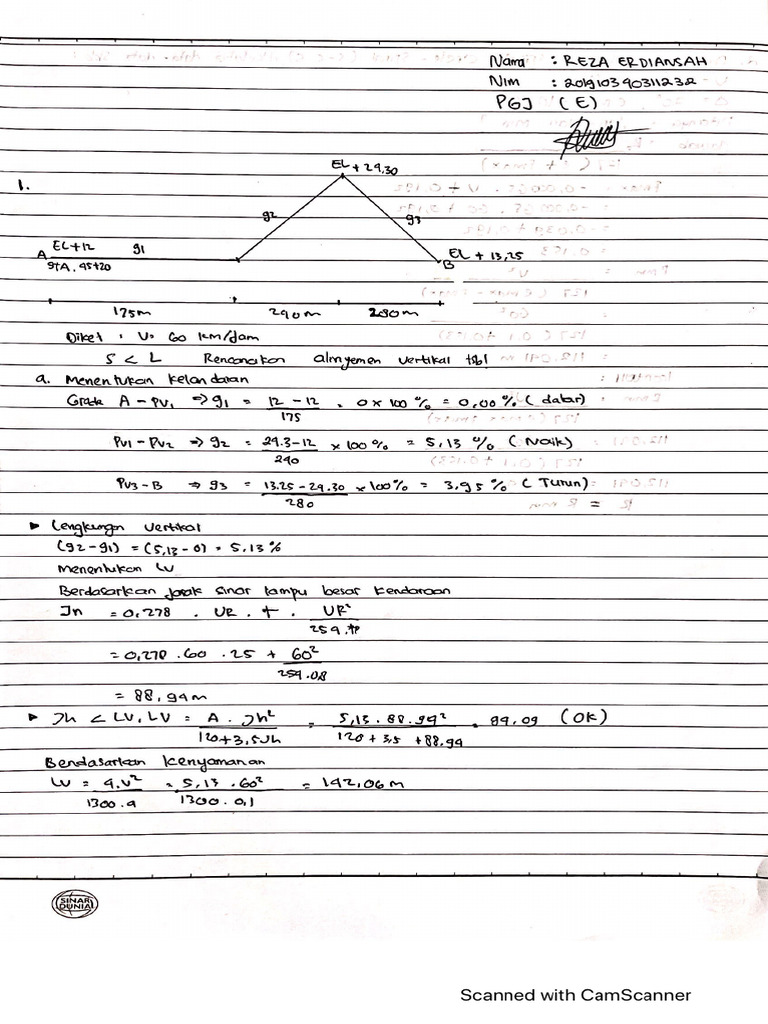 Nama : REZA ERDIANSAH
Nim : 201910340311232
PGJ (E)
1.
EL + 29,30
g2
g3
A EL+12 g1
STA. 45+20
EL + 13,25
B
175m 240m 280m
Diket : V= 60 km/jam
S < L Rencanakan alinyemen vertikal tsb!
a. Menentukan kelandaian
Grade A - PV1 ⇒ g1 = 12 - 12 / 175 = 0 x 100 % = 0,00 % ( datar)
PV1 - PV2 ⇒ g2 = 29.3-12 / 240 x 100 % = 5,13 % (Naik)
PV3 - B ⇒ g3 = 13.25 - 29.30 / 280 x 100% = 3,95 % ( Turun)
▸ Lengkungan vertikal
(g2 - g1) = (5,13 - 0) = 5,13 %
Menentukan Lv
Berdasarkan jarak sinar lampu besar kendaraan
Jh = 0,278 . VR . t . VR² / 254.fp
= 0,278 . 60 . 25 + 60² / 254.08
= 88,94 m
▸ Jh < LV, LV = A . Jh² / 120+3,5Jh = 5,13 . 88.94² / 120 + 3,5 + 88.94 = 94,09 (OK)
Berdasarkan kenyamanan
Lv = A.V² / 1300.a = 5,13 . 60² / 1300 . 0,1 = 142,06 m
SINAR DUNIA
Scanned with CamScanner